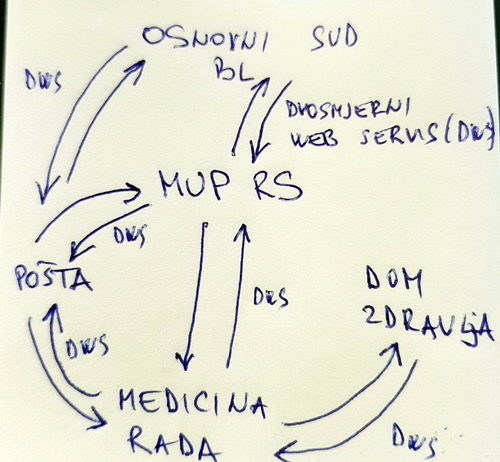 OSNOVNI SUD
BL
DWS
DVOSMJERNI
WEB SERVIS (DWS)
MUP RS
DWS
POŠTA
DWS
DOM
ZDRAVLJA
DWS
MEDICINA
RADA
DWS